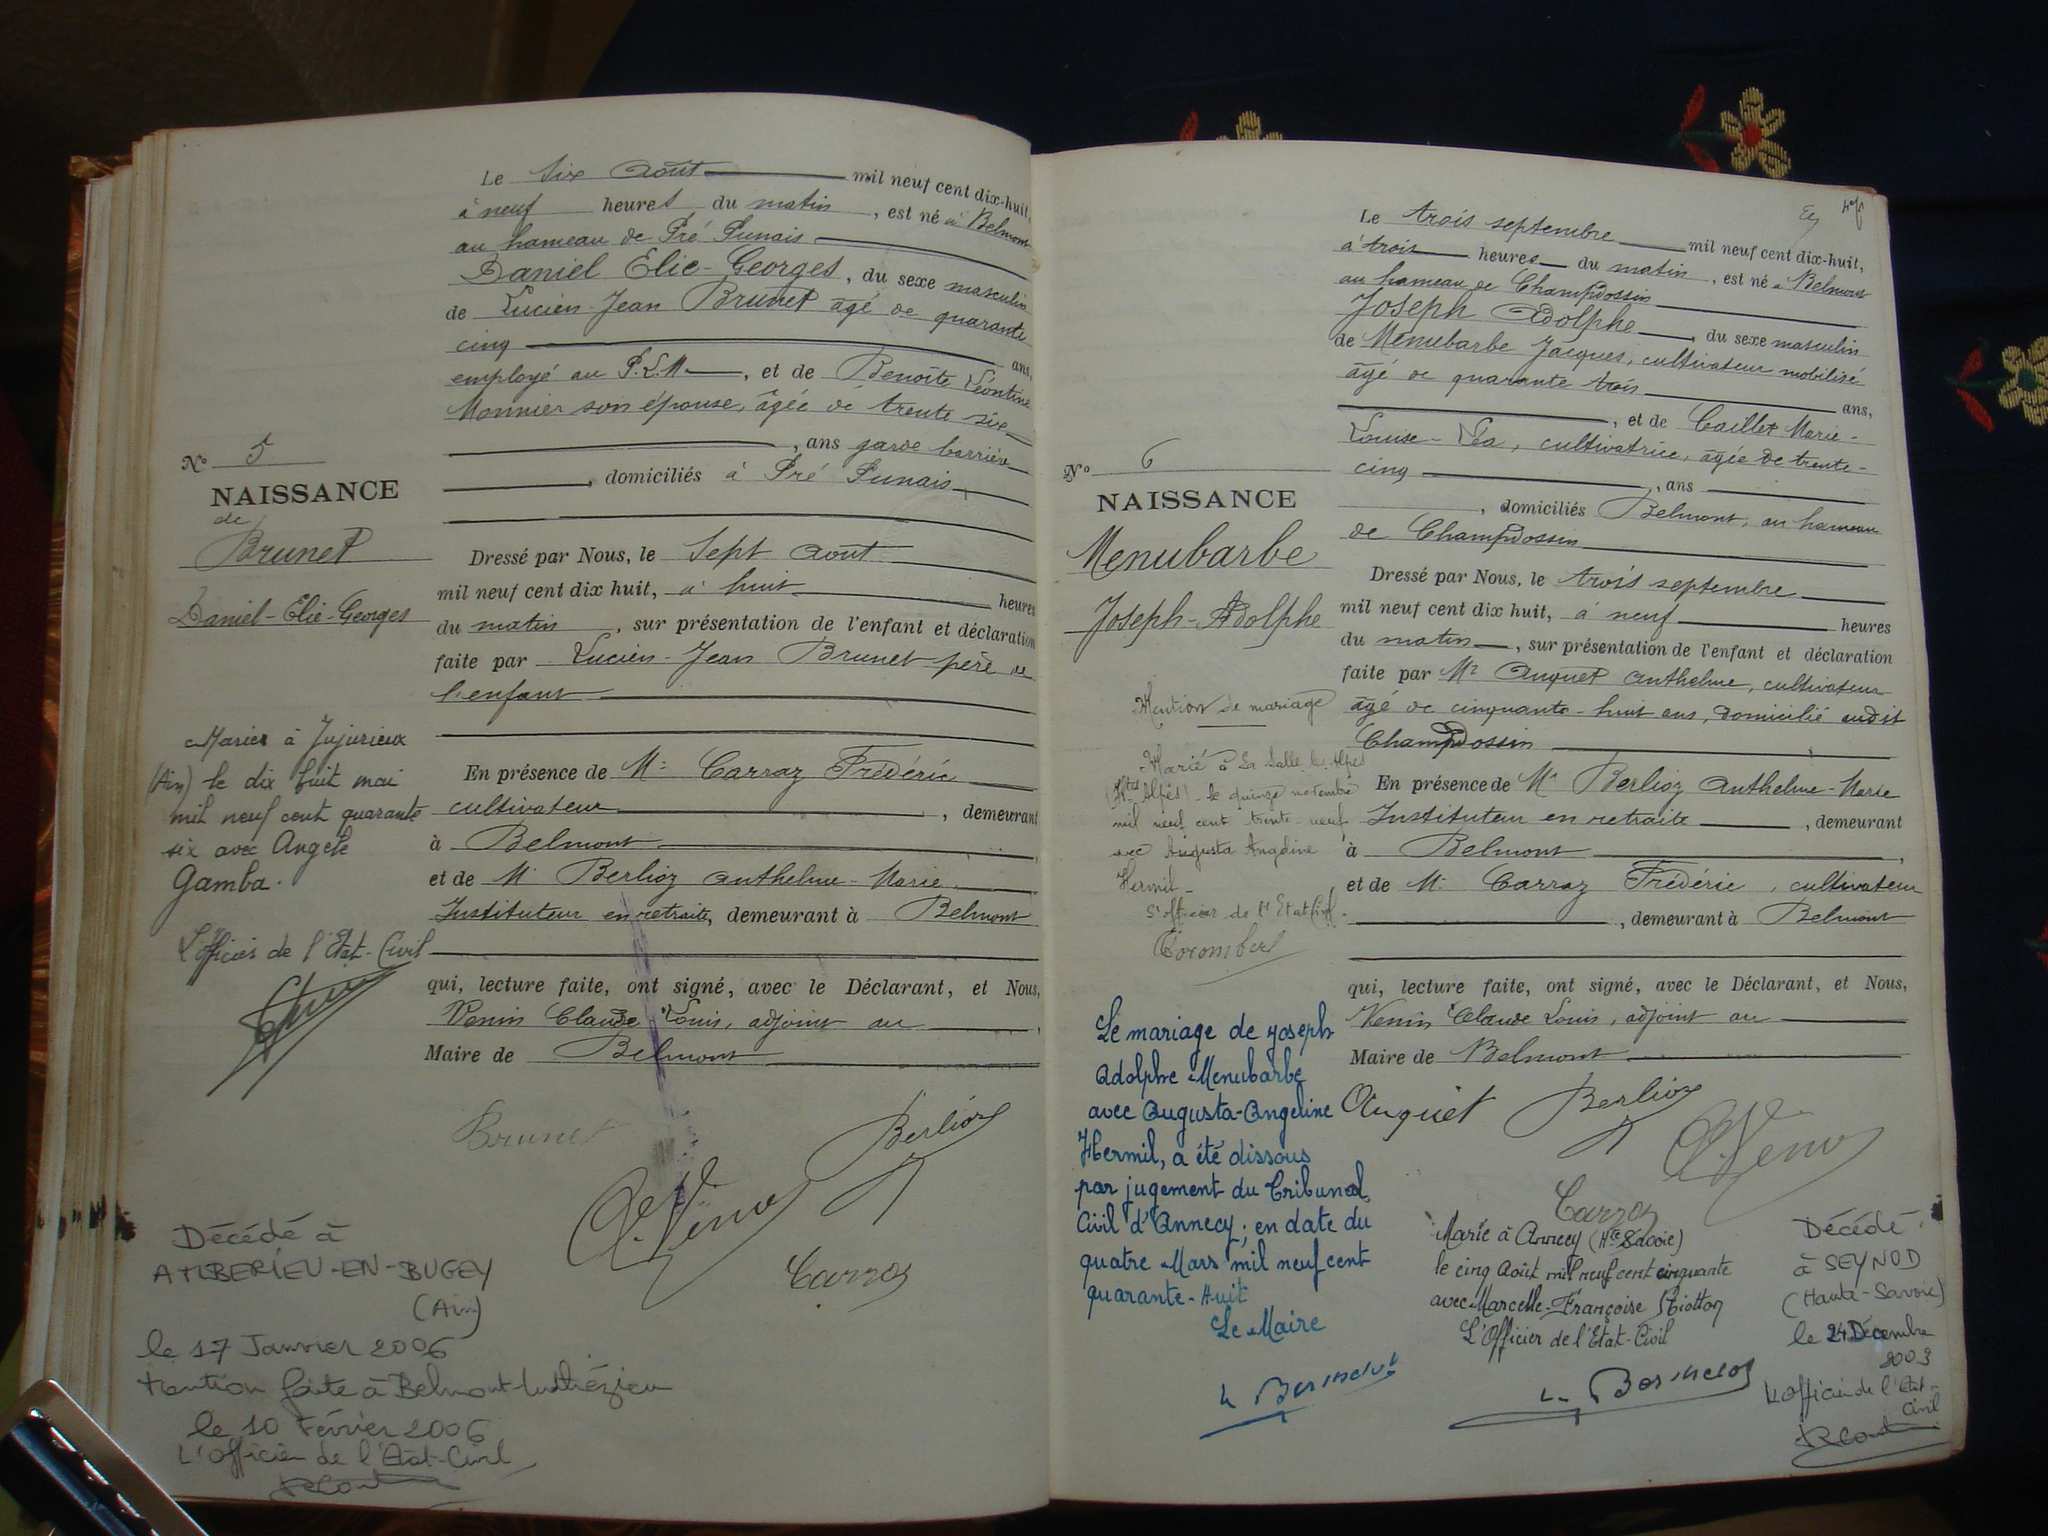 Le six août mil neuf cent dix-huit,
à neuf heures du matin, est né à Belmont
au hameau de Pré Punais
Daniel Elie-Georges, du sexe masculin
de Lucien-Jean Brunet âgé de quarante
cinq ans,
employé au P.L.M., et de Benoîte Léontine
Monnier son épouse, âgée de trente six
, ans garde barrière
, domiciliés à Pré Punais
Dressé par Nous, le Sept août
mil neuf cent dix huit, à huit heures
du matin, sur présentation de l'enfant et déclaration
faite par Lucien-Jean Brunet père de
l'enfant
En présence de Mr Carraz Frédéric
cultivateur, demeurant
à Belmont,
et de M. Berlioz Anthelme-Marie
Instituteur en retraite, demeurant à Belmont
qui, lecture faite, ont signé, avec le Déclarant, et Nous,
Venin Claude Louis, adjoint au
Maire de Belmont
Brunet
Berlioz
Carraz
No 5
NAISSANCE
de
Brunet
Daniel-Elie-Georges
Marier à Jujurieux
(Ain) le dix huit mai
mil neuf cent quarante
six avec Angèle
Gamba.
L'officier de l'Etat-Civil
Décédé à
AMBERIEU-EN-BUGEY
(Ain)
le 17 Janvier 2006
Mention faite à Belmont-Luthézieu
le 10 Février 2006
L'officier de l'Etat-Civil
Le trois septembre mil neuf cent dix-huit,
à trois heures du matin, est né à Belmont
au hameau de Champdossin
Joseph Adolphe, du sexe masculin
de Menubarbe Jacques, cultivateur mobilisé
âgé de quarante trois ans,
, et de Caillet Marie-
Louise-Léa, cultivatrice, âgée de trente-
cinq, ans
, domiciliés Belmont, au hameau
de Champdossin
Dressé par Nous, le trois septembre
mil neuf cent dix huit, à neuf heures
du matin, sur présentation de l'enfant et déclaration
faite par Mr Auquet Anthelme, cultivateur
âgé de cinquante-huit ans, domicilié audit
Champdossin
En présence de Mr Berlioz Anthelme-Marie
Instituteur en retraite, demeurant
à Belmont,
et de M. Carraz Frédéric, cultivateur
, demeurant à Belmont
qui, lecture faite, ont signé, avec le Déclarant, et Nous,
Venin Claude Louis, adjoint au
Maire de Belmont
Auquet Berlioz
Carraz
No 6
NAISSANCE
Menubarbe
Joseph-Adolphe
Mention de mariage
Marié à La Salle les Alpes
(Htes Alpes) le quinze novembre
mil neuf cent trente-neuf
avec Augusta Angéline
Hermil-
L'officier de l'Etat Civil.
Le mariage de Joseph
Adolphe Menubarbe
avec Augusta-Angeline
Hermil, a été dissous
par jugement du Tribunal
Civil d'Annecy, en date du
quatre Mars mil neuf cent
quarante-Huit
Le Maire
Marié à Annecy (Hte Savoie)
le cinq Août mil neuf cent cinquante
avec Marcelle-Françoise
L'Officier de l'Etat-Civil
Décédé
à SEYNOD
(Haute-Savoie)
le 24 Décembre
2003
L'officier de l'Etat-
Civil